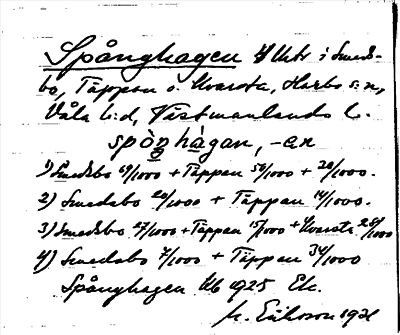 Spånghagen 4 Uhtr i Smeds-
bo, Täppan o. Kvarsta, Harbo s:n,
Våla h:d, Västmanlands l.
spòn hàgan, -an
1) Smedsbo 69/1000 + Täppan 50/1000 + 20/1000.
2) Smedsbo 20/1000 + Täppan 14/1000.
3) Smedsbo 27/1000 + Täppan 15/1000 + Kvarsta 28/1000
4) Smedsbo 7/1000 + Täppan 34/1000
Spånghagen Kb 1925 Ek.
M. Eriksson 1931